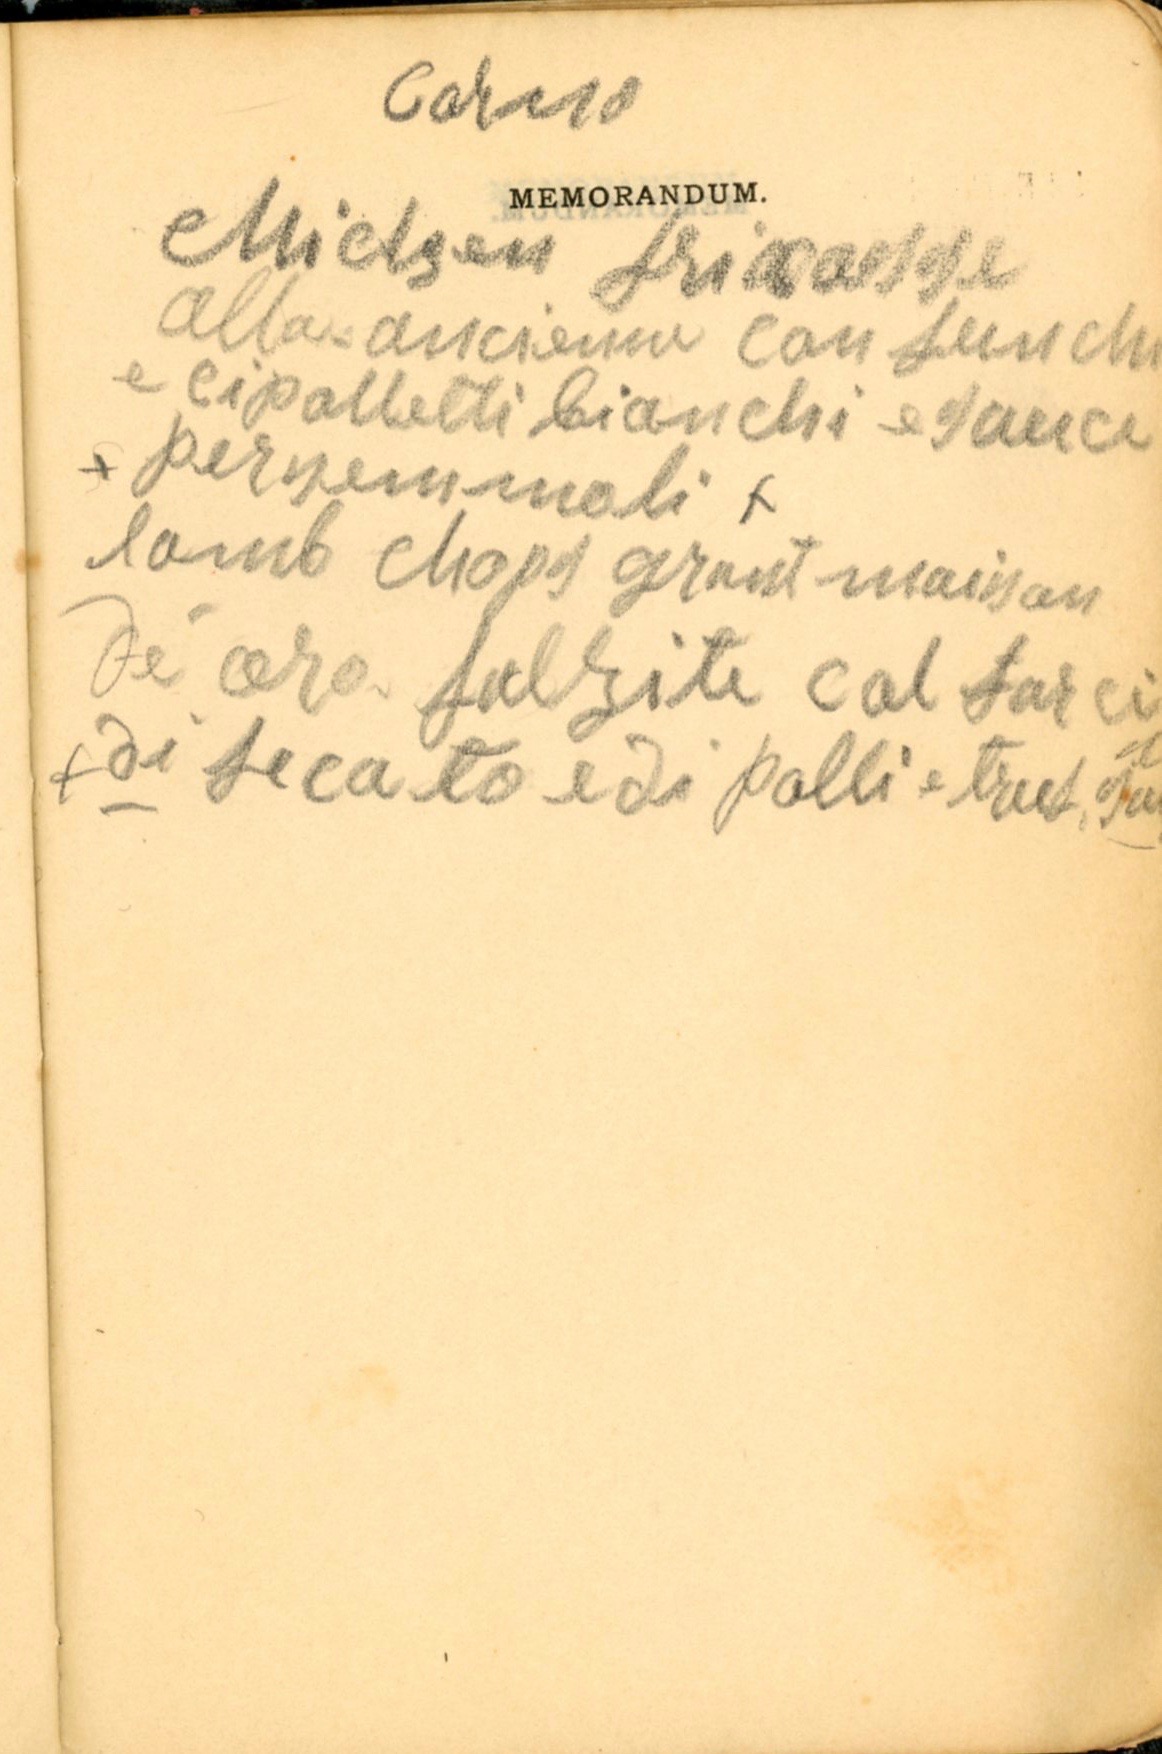 Carno
MEMORANDUM.
Chicken fricasse
alla ancienne con funchi
e cipolletti bianchi e sauce
+ persemmoli +
lamb chops grant maison
Dé oro falzite col farci
+ di fecato e di polli e truf.